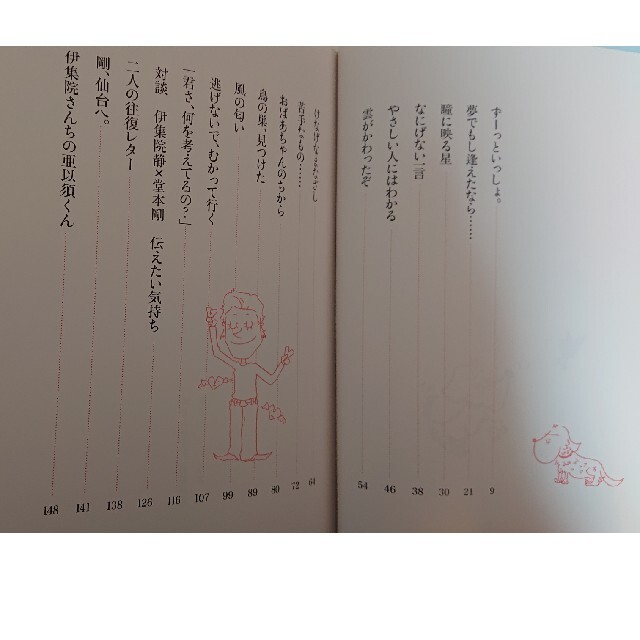 ずーっといっしょ。 9
夢でもし逢えたなら…… 21
瞳に映る星 30
なにげない一言 38
やさしい人にはわかる 46
雲がかわったぞ 54
けなげなまなざし 64
苦手なもの…… 72
おばあちゃんのちから 80
鳥の巣、見つけた 89
風の匂い 99
逃げないで、むかって行く 107
「君さ、何を考えてるの?」 116
対談 伊集院静×堂本剛 伝えたい気持ち 126
二人の往復レター 138
剛、仙台へ。 141
伊集院さんちの亜以須くん 148